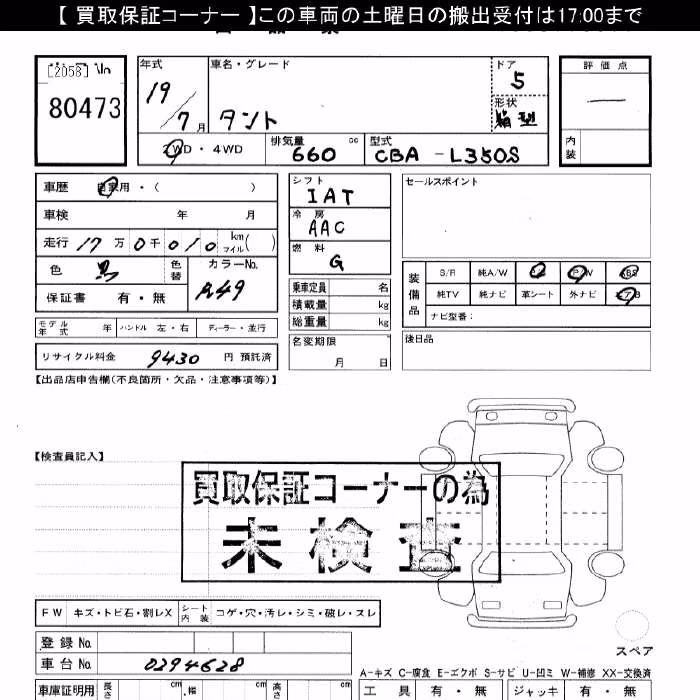 【 買取保証コーナー 】この車両の土曜日の搬出受付は17:00まで
[2058]
80473
年式
19/7月
車名・グレード
タント
ドア
5
形状
箱型
評価点
—
内装
2WD・4WD
排気量
660 cc
型式
CBA-L350S
車歴 自家用・( )
車検 年 月
走行 17万0千010 km マイル( )
色 黒 色替
カラーNo.
保証書 有・無
シフト
IAT
冷房
AAC
燃料
G
乗車定員 名
積載量 kg
総重量 kg
名変期限
月 日
セールスポイント
装備品
S/R 純A/W P/S P/W ABS
純TV 純ナビ 革シート 外ナビ エアB
ナビ型番：
後日品
モデル年式 年 ハンドル 左・右 ディーラー・並行
リサイクル料金 9430 円 預託済
【出品店申告欄(不良箇所・欠品・注意事項等)】
【検査員記入】
買取保証コーナーの為
未検査
FW キズ・トビ石・割レX シート内装 コゲ・穴・汚レ・シミ・破レ・スレ
登録 No.
車台 No. 0294628
スペア
A-キズ C-腐食 E-エクボ S-サビ U-凹ミ W-補修 XX-交換済
車庫証明用 長さ cm 幅 cm 高さ cm
工具 有・無 ジャッキ 有・無